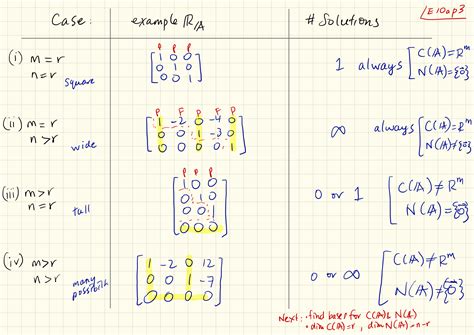 E10 p3
Case: example R_A # Solutions
(i) m = r
n = r square
P P P
[1 0 0
0 1 0
0 0 1]
1 always [C(A)=R^m
N(A)={0}
(ii) m = r
n > r wide
P F P F P
[1 -2 0 -4 0
0 0 1 -3 0
0 0 0 0 1]
∞ always [C(A)=R^m
N(A)≠{0}
(iii) m > r
n = r tall
P P P
[1 0 0
0 1 0
0 0 1
0 0 0]
0 or 1 [C(A)≠R^m
N(A)={0}
(iv) m > r
n > r many
possibilit
[1 -2 0 12
0 0 1 -7
0 0 0 0]
0 or ∞ [C(A)≠R^m
N(A)≠{0}
Next: • find bases for C(A) & N(A)
• dim C(A)=r, dim N(A)=n-r